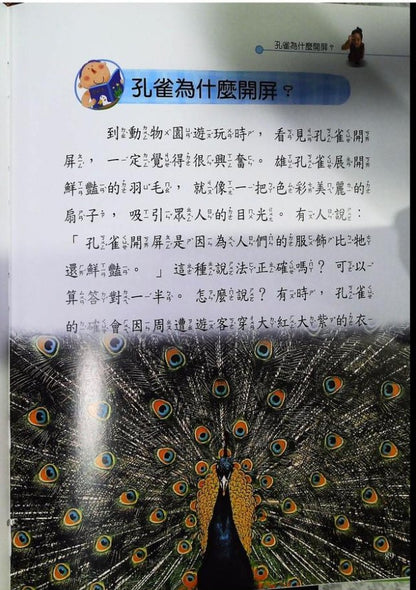 孔雀為什麼開屏？
孔雀為什麼開屏？
到動物園遊玩時，看見孔雀開
屏，一定覺得很興奮。雄孔雀展開
鮮豔的羽毛，就像一把色彩美麗的
扇子，吸引眾人的目光。有人說：
「孔雀開屏是因為人們的服飾比牠
還鮮豔。」這種說法正確嗎？可以
算答對一半。怎麼說？有時，孔雀
的確會因周遭遊客穿大紅大紫的衣